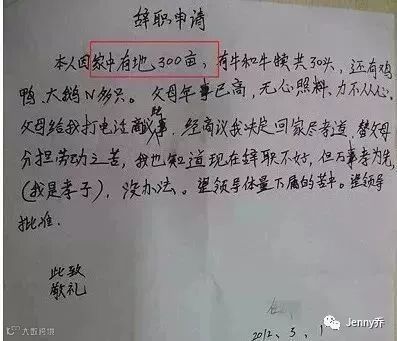 辞职申请
本人因家中有地300亩,有牛和牛犊共30头,还有鸡
鸭、大鹅N多只。父母年事已高,无心照料、力不从心。
父母给我打电话商议此事,经商议我决定回家尽孝道,替父母
分担劳动之苦,我也知道现在辞职不好,但万事孝为先,
(我是孝子),没办法。望领导体量下属的苦中。望领导
批准.
此致
敬礼
2012、3、1
大数跨境
Jenny乔